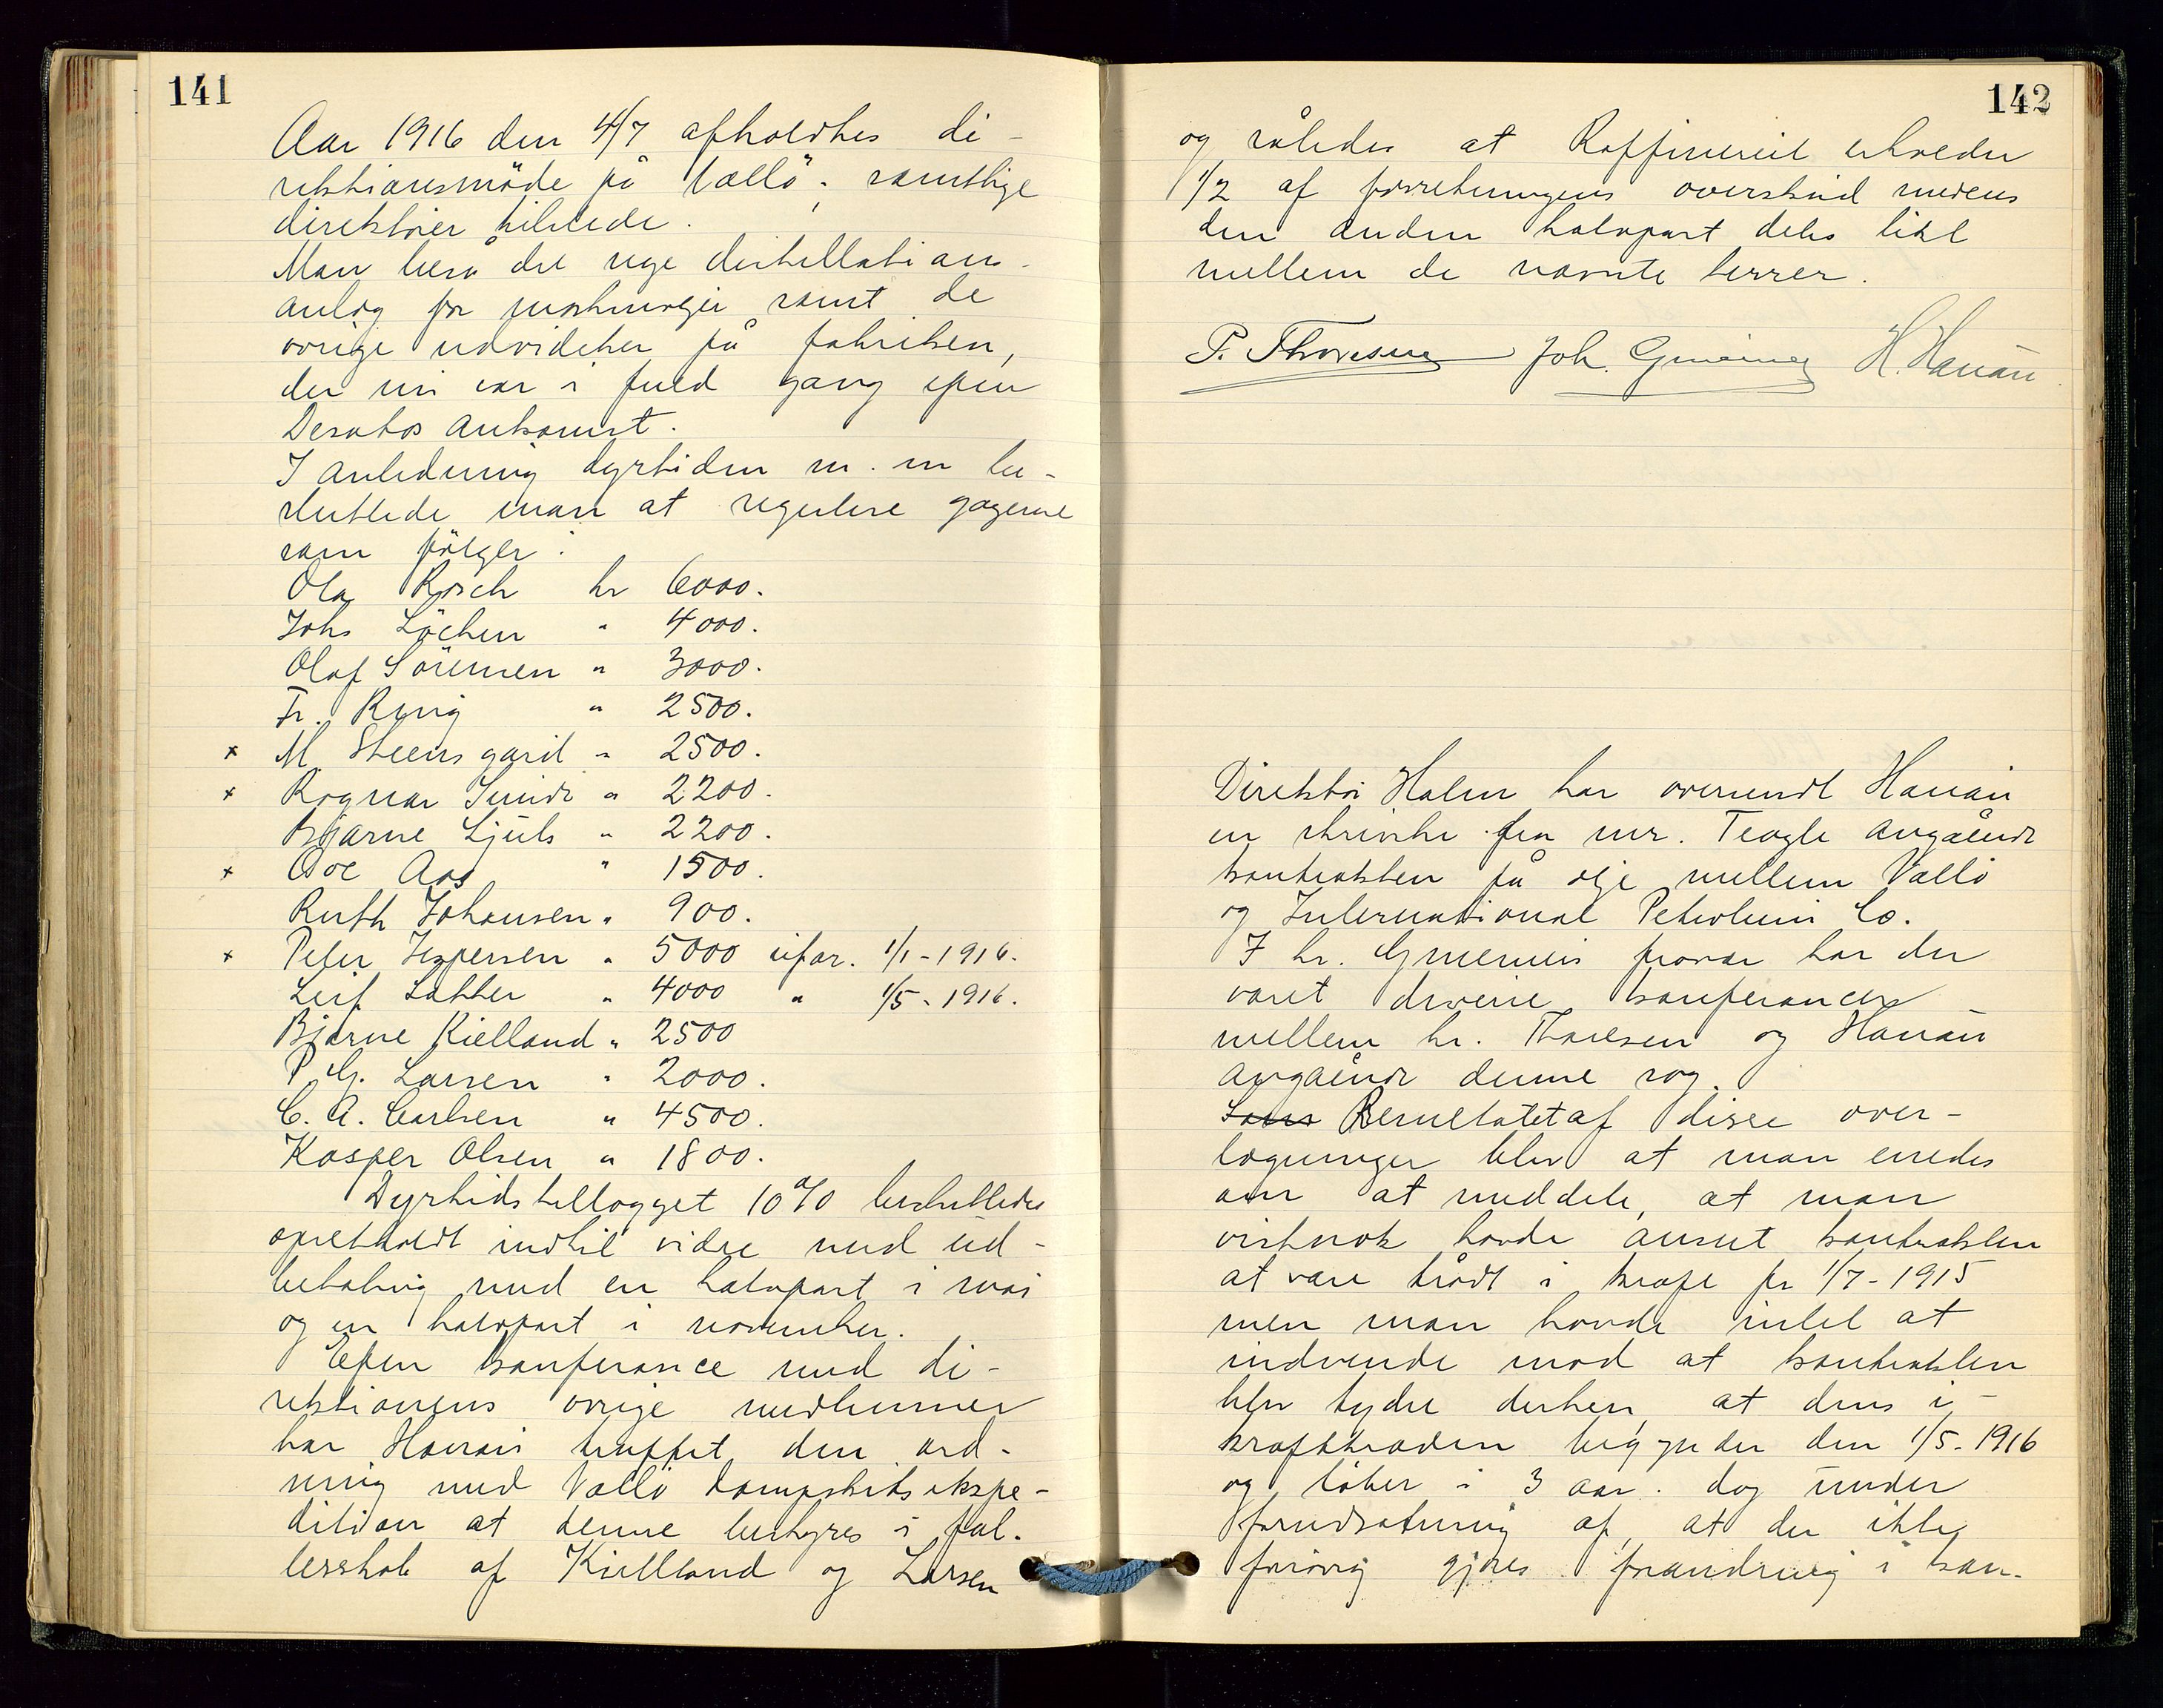 141
Aar 1916 den 4/7 afholdtes di-
rektionsmöde på Vallö; samtlige
direktörer tilstede.
Man beså det nye destillations-
anlæg for maskinoljer samt de
övrige udvidelser på fabriken,
der nu var i fuld gang efter
Desatos ankomst.
I anledning dyrtiden m. m be-
sluttede man at regulere gagerne
som fölger:
Ola Rosch kr 6000.
Johs Löchen " 4000.
Olaf Sörensen " 3000.
Fr. Ring " 2500.
x M. Steensgard " 2500.
x Ragnar Sunde " 2200.
Bjarne Ljuls " 2200.
x Ove Aas " 1500.
Ruth Johansen " 900.
x Peter Jespersen " 5000 ifar. 1/1-1916.
Leif Løkker " 4000 " 1/5-1916.
Bjarne Kielland " 2500
P. G. Larsen " 2000.
C. A. Carlsen " 4500.
Kasper Olsen " 1800.
Dyrtidstillægget 10% besluttedes
opretholdt indtil videre med ud-
betaling med en halvpart i mai
og en halvpart i november.
Efter konferance med di-
rektionens övrige medlemmer
har Hanan truffet den ord-
ning med Vallö dampskibsekspe-
dition at denne bestyres i fæl-
lesskab af Kielland og Larsen
142
og således at Raffineriet erholder
1/2 af forretningens overskud medens
den anden halvpart deles likt
mellem de nævnte herrer.
P. Thoresen Joh. H. Hanan
Direktör Holm har oversendt Hanan
en skrivelse fra mr. Teagle angående
kontrakten på olje mellem Vallö
og International Petroleum Co.
I hr. fravær har der
været diverse konferancer
mellem hr. Thoresen og Hanan
angående denne sag.
Som Resultatet af disse over-
lægninger blev at man enedes
om at meddele, at man
vistnok havde anset kontrakten
at være trådt i kraft pr 1/7-1915
men man havde intet at
indvende mod at kontrakten
blev tydet derhen, at dens i-
krafttræden begynder den 1/5-1916
og löber i 3 aar. dog under
forudsætning af, at der ikke
forövrig gjöres forandring i kon-